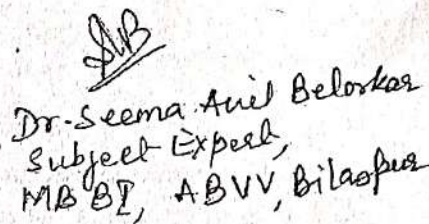 SAB
Dr. Seema Anil Belorkar
Subject Expert,
MB BI, ABVV, Bilaspur